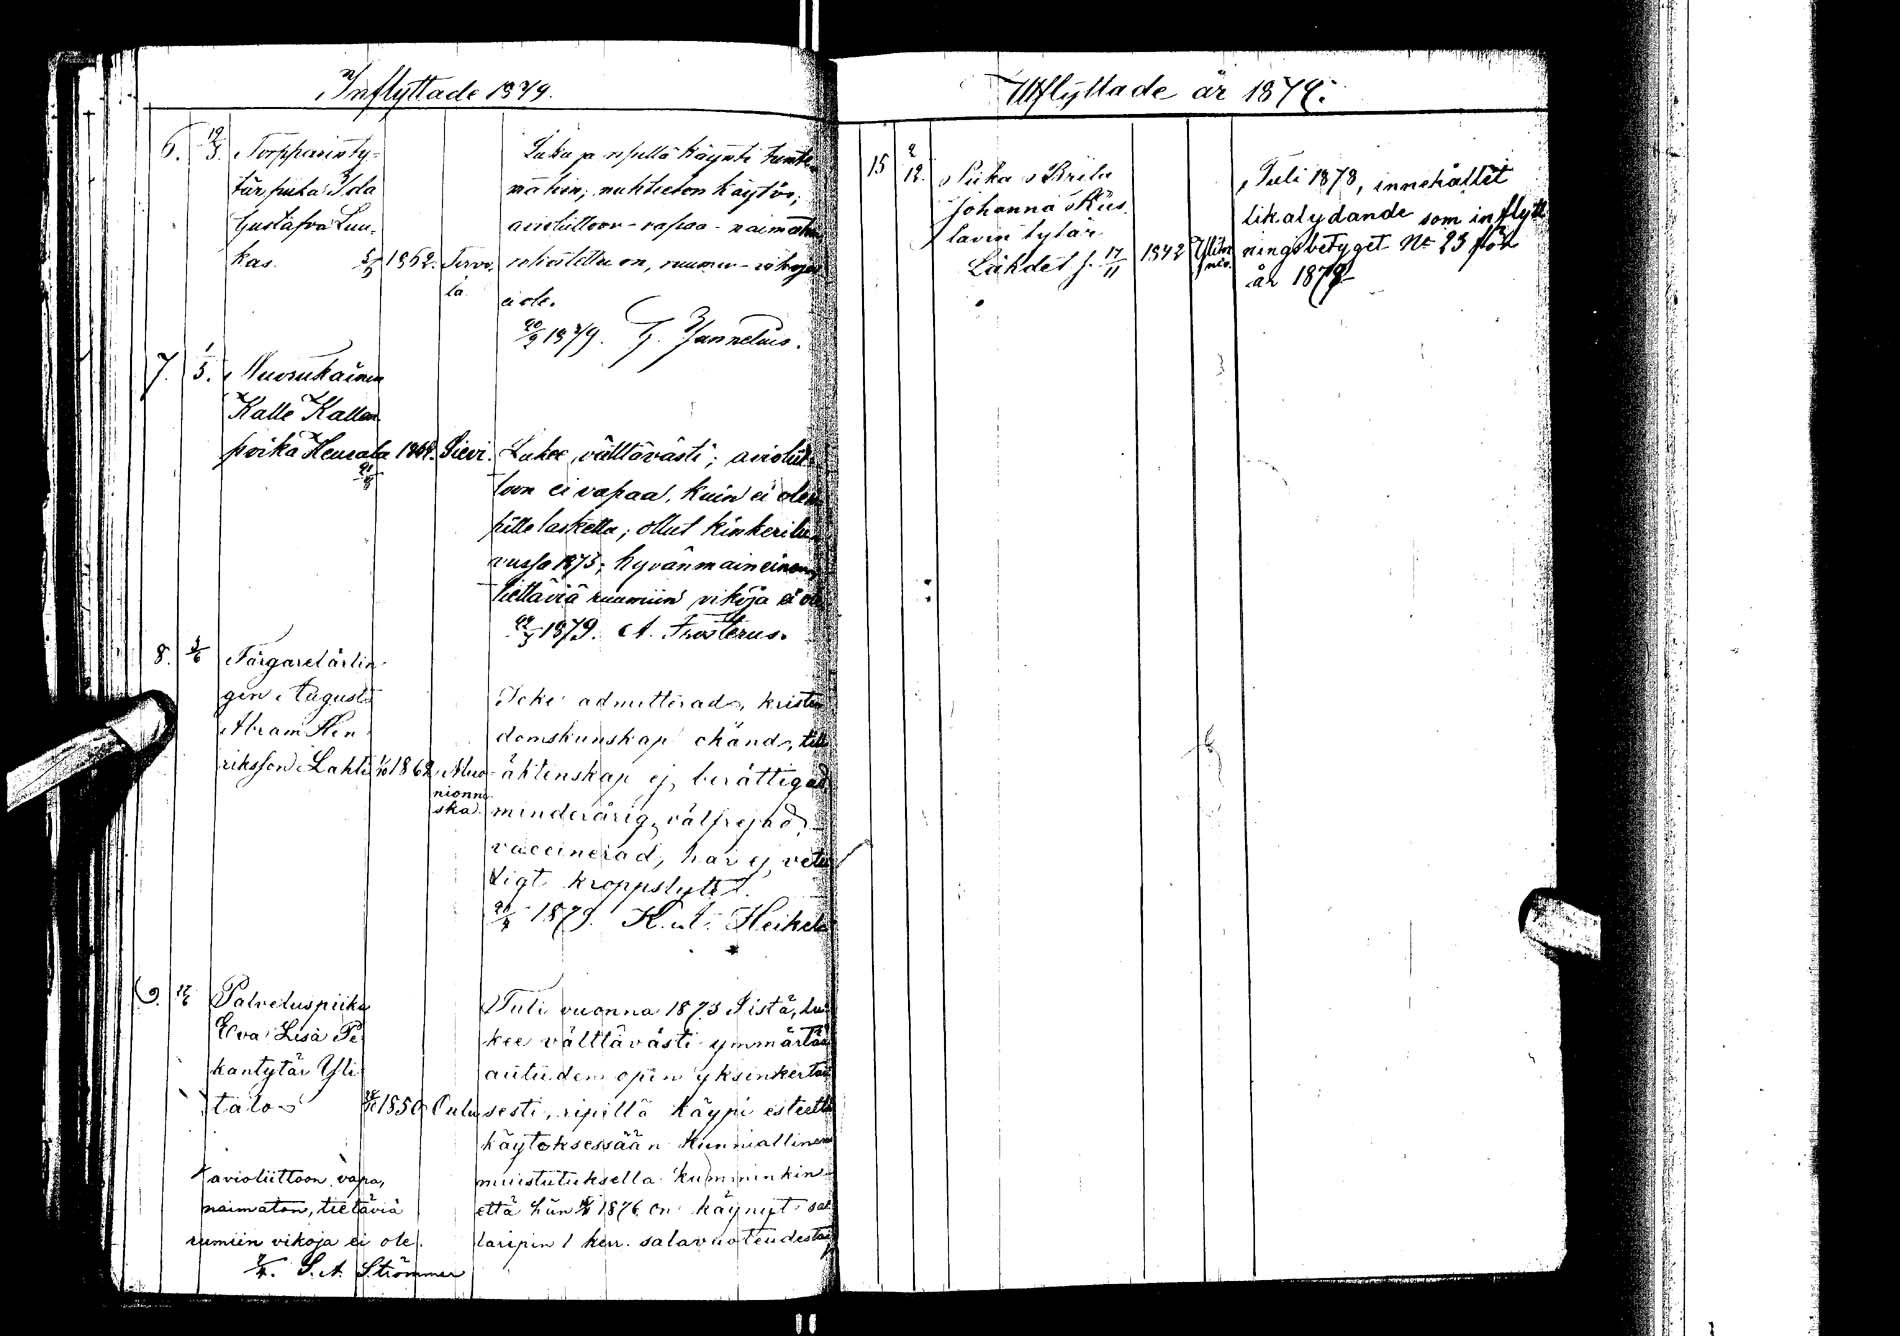 Inflyttade 1879.
6. 19/3. Torpparinty-
tär piika Ida
Gustafva Luu-
kas. 1862. Tervo-
la
Luku ja ripillä käynti tunte-
matoin; nuhteeton käytös;
avioliittoon vapaa - naimaton
rokoitettu on, ruumiin vikoja
ei ole.
20/2 1879. G. Zannelius.
7. 1/5. Nuorukainen
Kalle Kallen
poika Heusala 1864. Sievi.
Lukee välttävästi; avioliit-
toon ei vapaa, kuin ei ole ri-
pille laskettu; ollut kinkerilu-
vussa 1875; hyvänmaineinen,
tiettäviä ruumiin vikoja ei ole
1879. A. Frosterus.
8. 3/6 Färgarelärlin-
gen August
Abram Hen-
riksson Lahti 1/10 1862 Muo-
nionni-
ska
Icke admitterad, kristen-
domskunskap okänd, till
äktenskap ej berättigad,
minderårig, välfrejad,
vaccinerad, har ej veter-
ligt kroppslyte.
1879. K. A. Heikel
9. 17/6 Palveluspiika
Eva Lisa Pe-
kantytär Yli-
talo 1850 Oulu
Tuli vuonna 1873 Iistä, lu-
kee välttävästi ymmärtää
autuuden opin yksinkertai-
sesti, ripillä käypi esteettä
käytöksessään kunniallinen
muistutuksella kumminkin
että hän 1876 on käynyt sa-
laripin 1 kerr. salavuoteudesta
avioliittoon vapa,
naimaton, tietäviä
rumiin vikoja ei ole.
S. A. Strömmer
Utflyttade år 1879.
15 2/12. Piika Brita
Johanna Kus-
tavin tytär
Lähdet f. 17/11 1842 Ylitor-
nio.
Tuli 1878, innehållet
likalydande som inflytt-
ningsbetyget No 23 för
år 1878